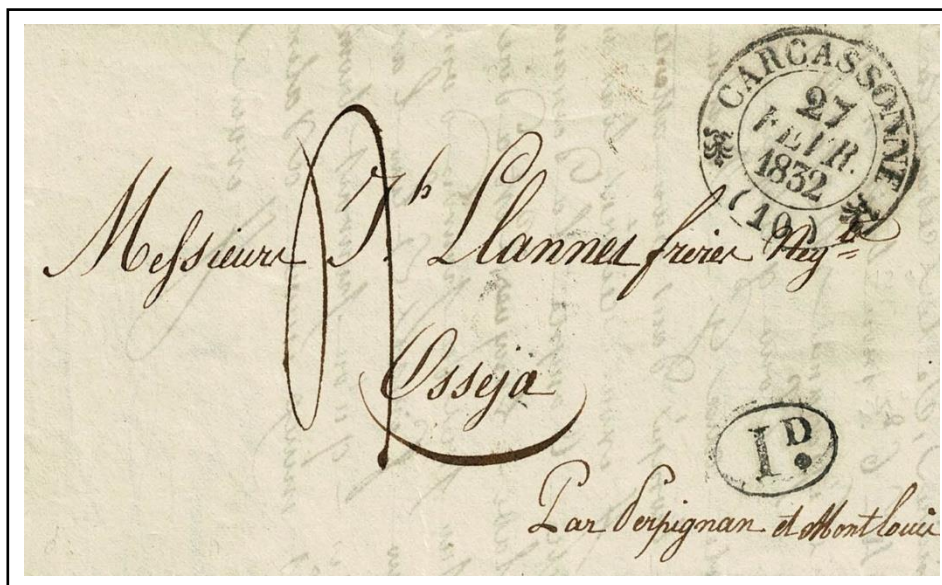 CARCASSONNE
27
FEVR.
1832
(10)
Messieurs Jh Llannes freres Negts
Osseja
1D.
Par Perpignan et Montlouis